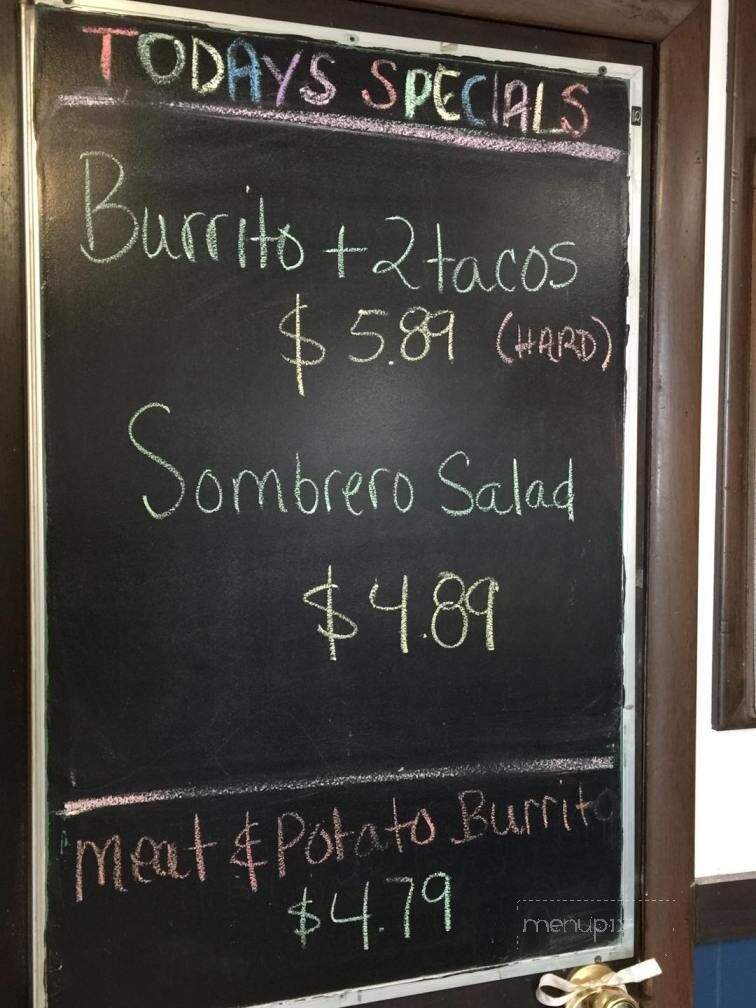 TODAYS SPECIALS
Burrito + 2 tacos
$ 5.89 (HARD)
Sombrero Salad
$4.89
Meat & Potato Burrito
$4.79
menupix